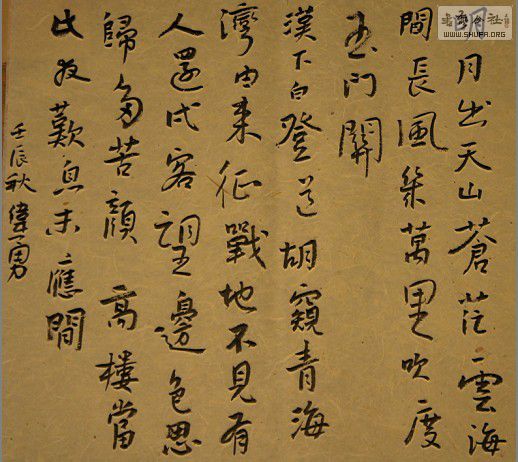 明月出天山蒼茫雲海
間長風幾萬里吹度
玉門關
漢下白登道胡窺青海
灣由来征戰地不見有
人還戍客望邊色思
歸多苦顏高樓當
此夜歎息未應間
壬辰秋偉勇
WWW.SHUFA.ORG